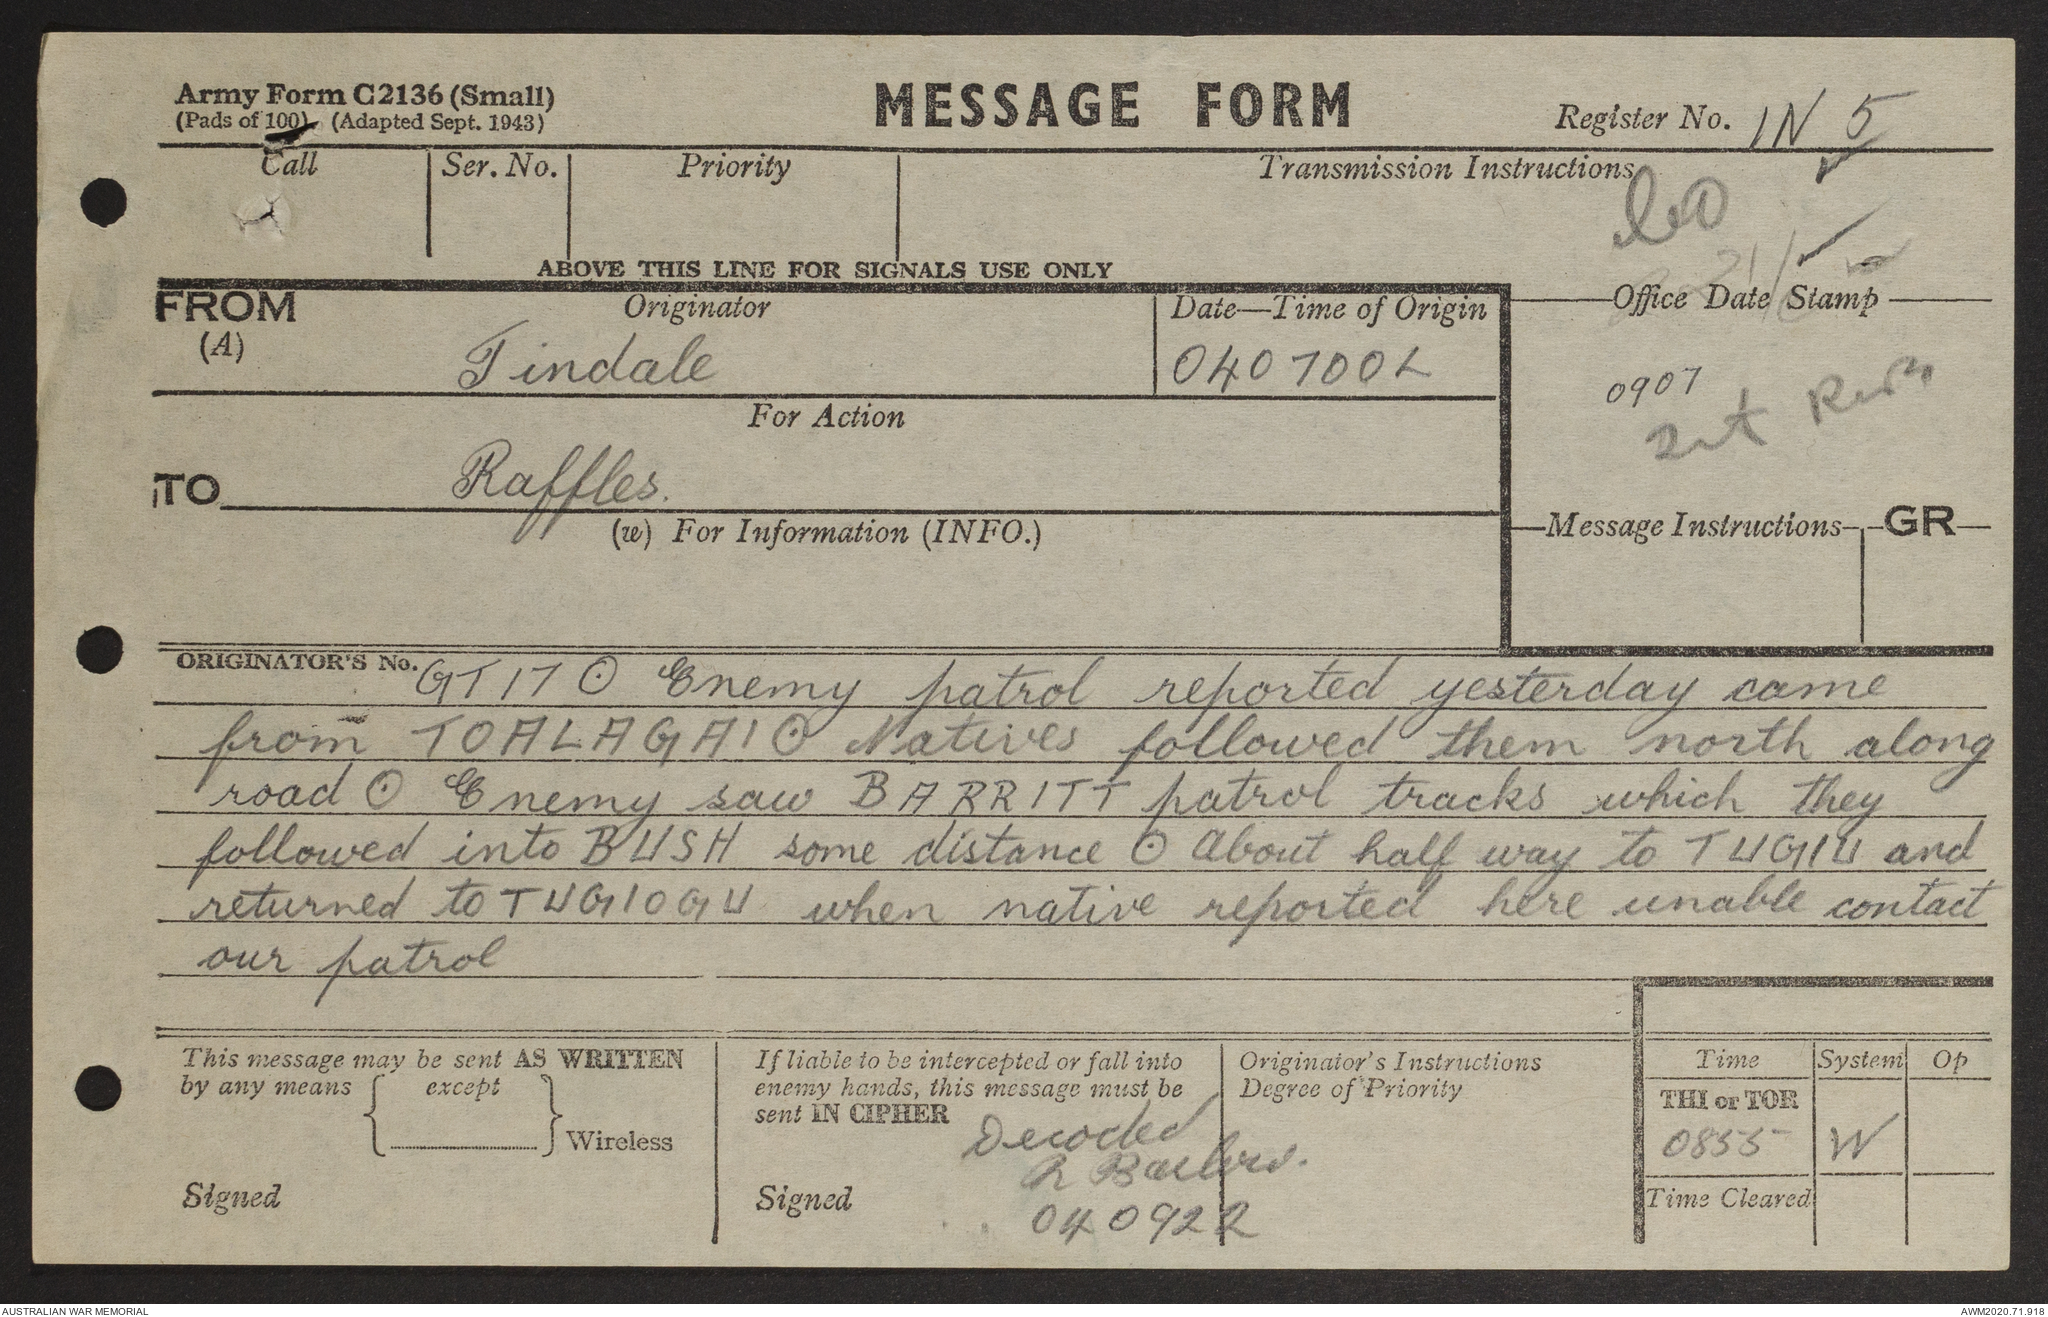 Army Form C2136 (Small)
(Pads of 100). (Adapted Sept. 1943)
MESSAGE FORM
Register No. IN 5
Call
Ser. No.
Priority
Transmission Instructions
ABOVE THIS LINE FOR SIGNALS USE ONLY
FROM
(A)
Originator
Tindale
Date—Time of Origin
040700L
Office Date Stamp
0907
For Action
TO
Raffles.
(w) For Information (INFO.)
Message Instructions
GR
ORIGINATOR'S No. GT17 ⊙ Enemy patrol reported yesterday came
from TOALAGAI ⊙ Natives followed them north along
road ⊙ Enemy saw BARRITT patrol tracks which they
followed into BUSH some distance ⊙ About half way to TUGIU and
returned to TUGIOGU when native reported here unable contact
our patrol
This message may be sent AS WRITTEN
by any means { except } Wireless
Signed
If liable to be intercepted or fall into
enemy hands, this message must be
sent IN CIPHER
Decoded
Signed
040922
Originator's Instructions
Degree of Priority
Time
System
Op
THI or TOR
0855
W
Time Cleared
AUSTRALIAN WAR MEMORIAL
AWM2020.71.918